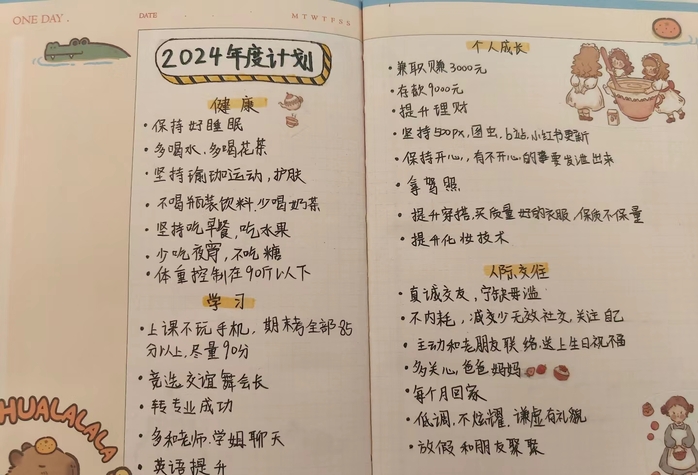 ONE DAY.
DATE
M T W T F S S
2024年度计划
健康
·保持好睡眠
·多喝水,多喝花茶
·坚持瑜珈运动,护肤
·不喝瓶装饮料,少喝奶茶
·坚持吃早餐,吃水果
·少吃夜宵,不吃糖
·体重控制在90斤以下
学习
·上课不玩手机,期末考全部85
分以上,尽量90分
·竞选交谊舞会长
·转专业成功
·多和老师.学姐聊天
·英语提升
HUALALALA
个人成长
·兼职赚3000元
·存款9000元
·提升理财
·坚持500px,图虫,b站,小红书更新
·保持开心,有不开心的事要发泄出来
·拿驾照
·提升穿搭,买质量好的衣服,保质不保量
·提升化妆技术
人际交往
·真诚交友,宁缺毋滥
·不内耗,减少无效社交,关注自己
·主动和老朋友联络,送上生日祝福
·多关心爸爸妈妈
·每个月回家
·低调,不炫耀,谦虚有礼貌
·放假和朋友聚聚